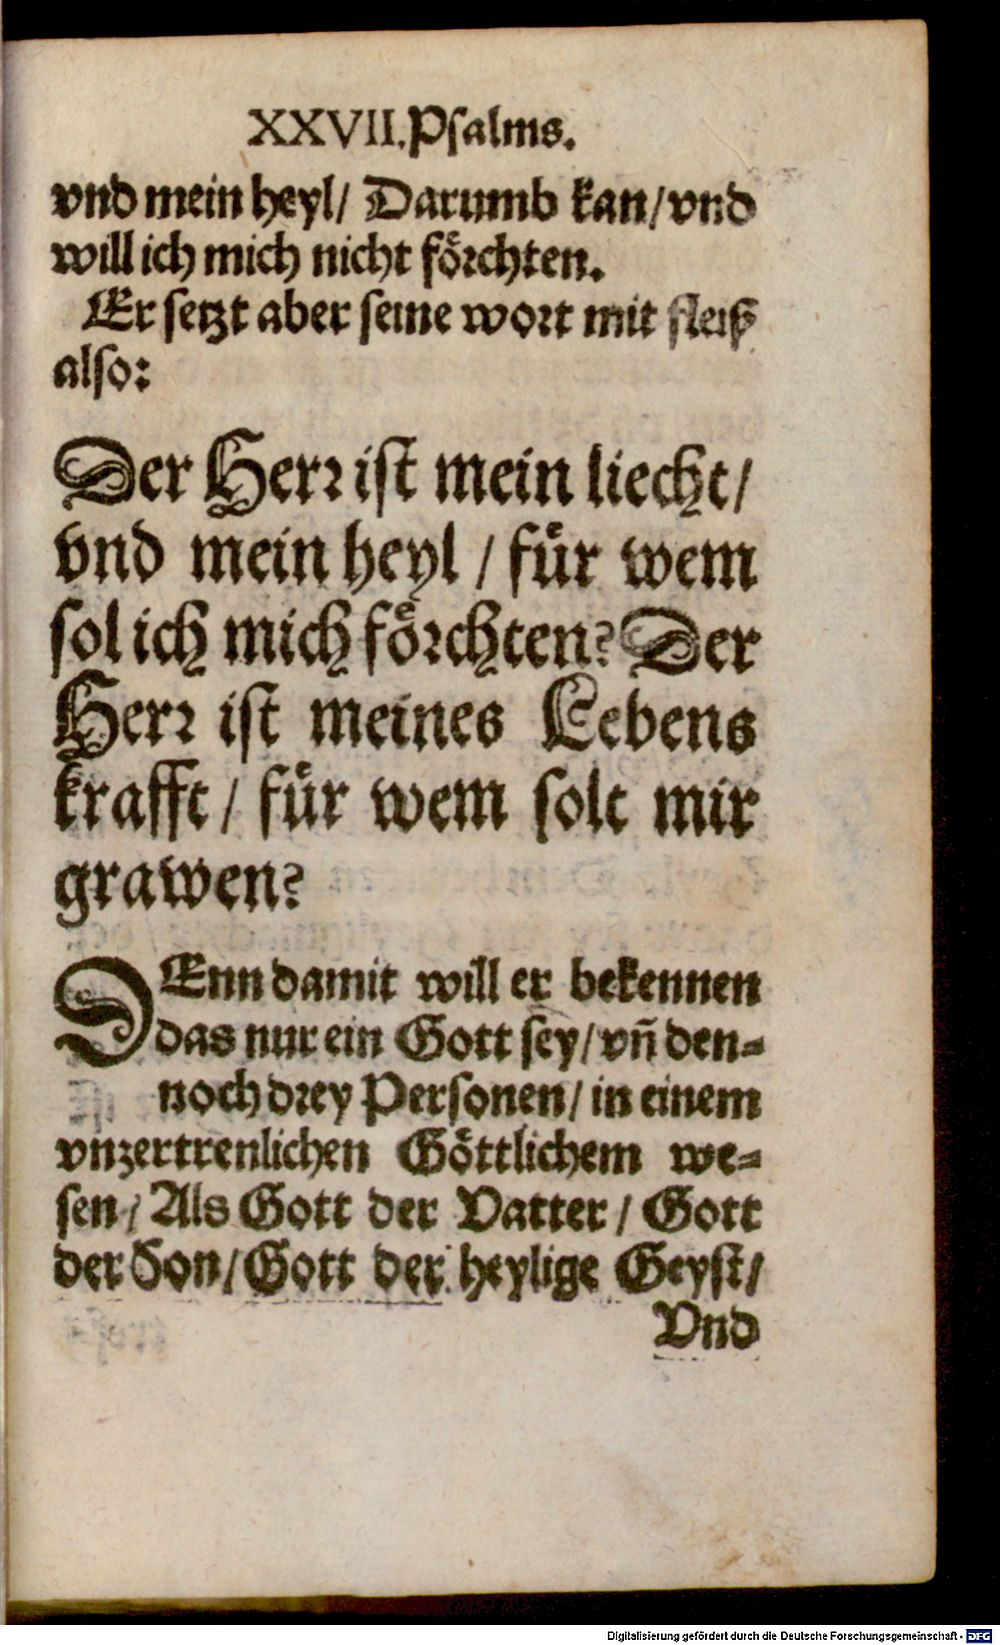 XXVII. Psalms.
vnd mein heyl/ Darumb kan/ vnd
will ich mich nicht föꝛchten.
Er setzt aber seine woꝛt mit fleiß
also:
Der Herꝛ ist mein liecht/
vnd mein heyl / für wem
sol ich mich föꝛchten? Der
Herꝛ ist meines Lebens
krafft / für wem solt mir
grawen?
DEnn damit will er bekennen
das nur ein Gott sey/ vñ den=
noch dꝛey Personen/ in einem
vnzertrenlichen Göttlichem we=
sen / Als Gott der Vatter / Gott
der Son/ Gott der heylige Geyst/
Vnd
Digitalisierung gefördert durch die Deutsche Forschungsgemeinschaft - DFG